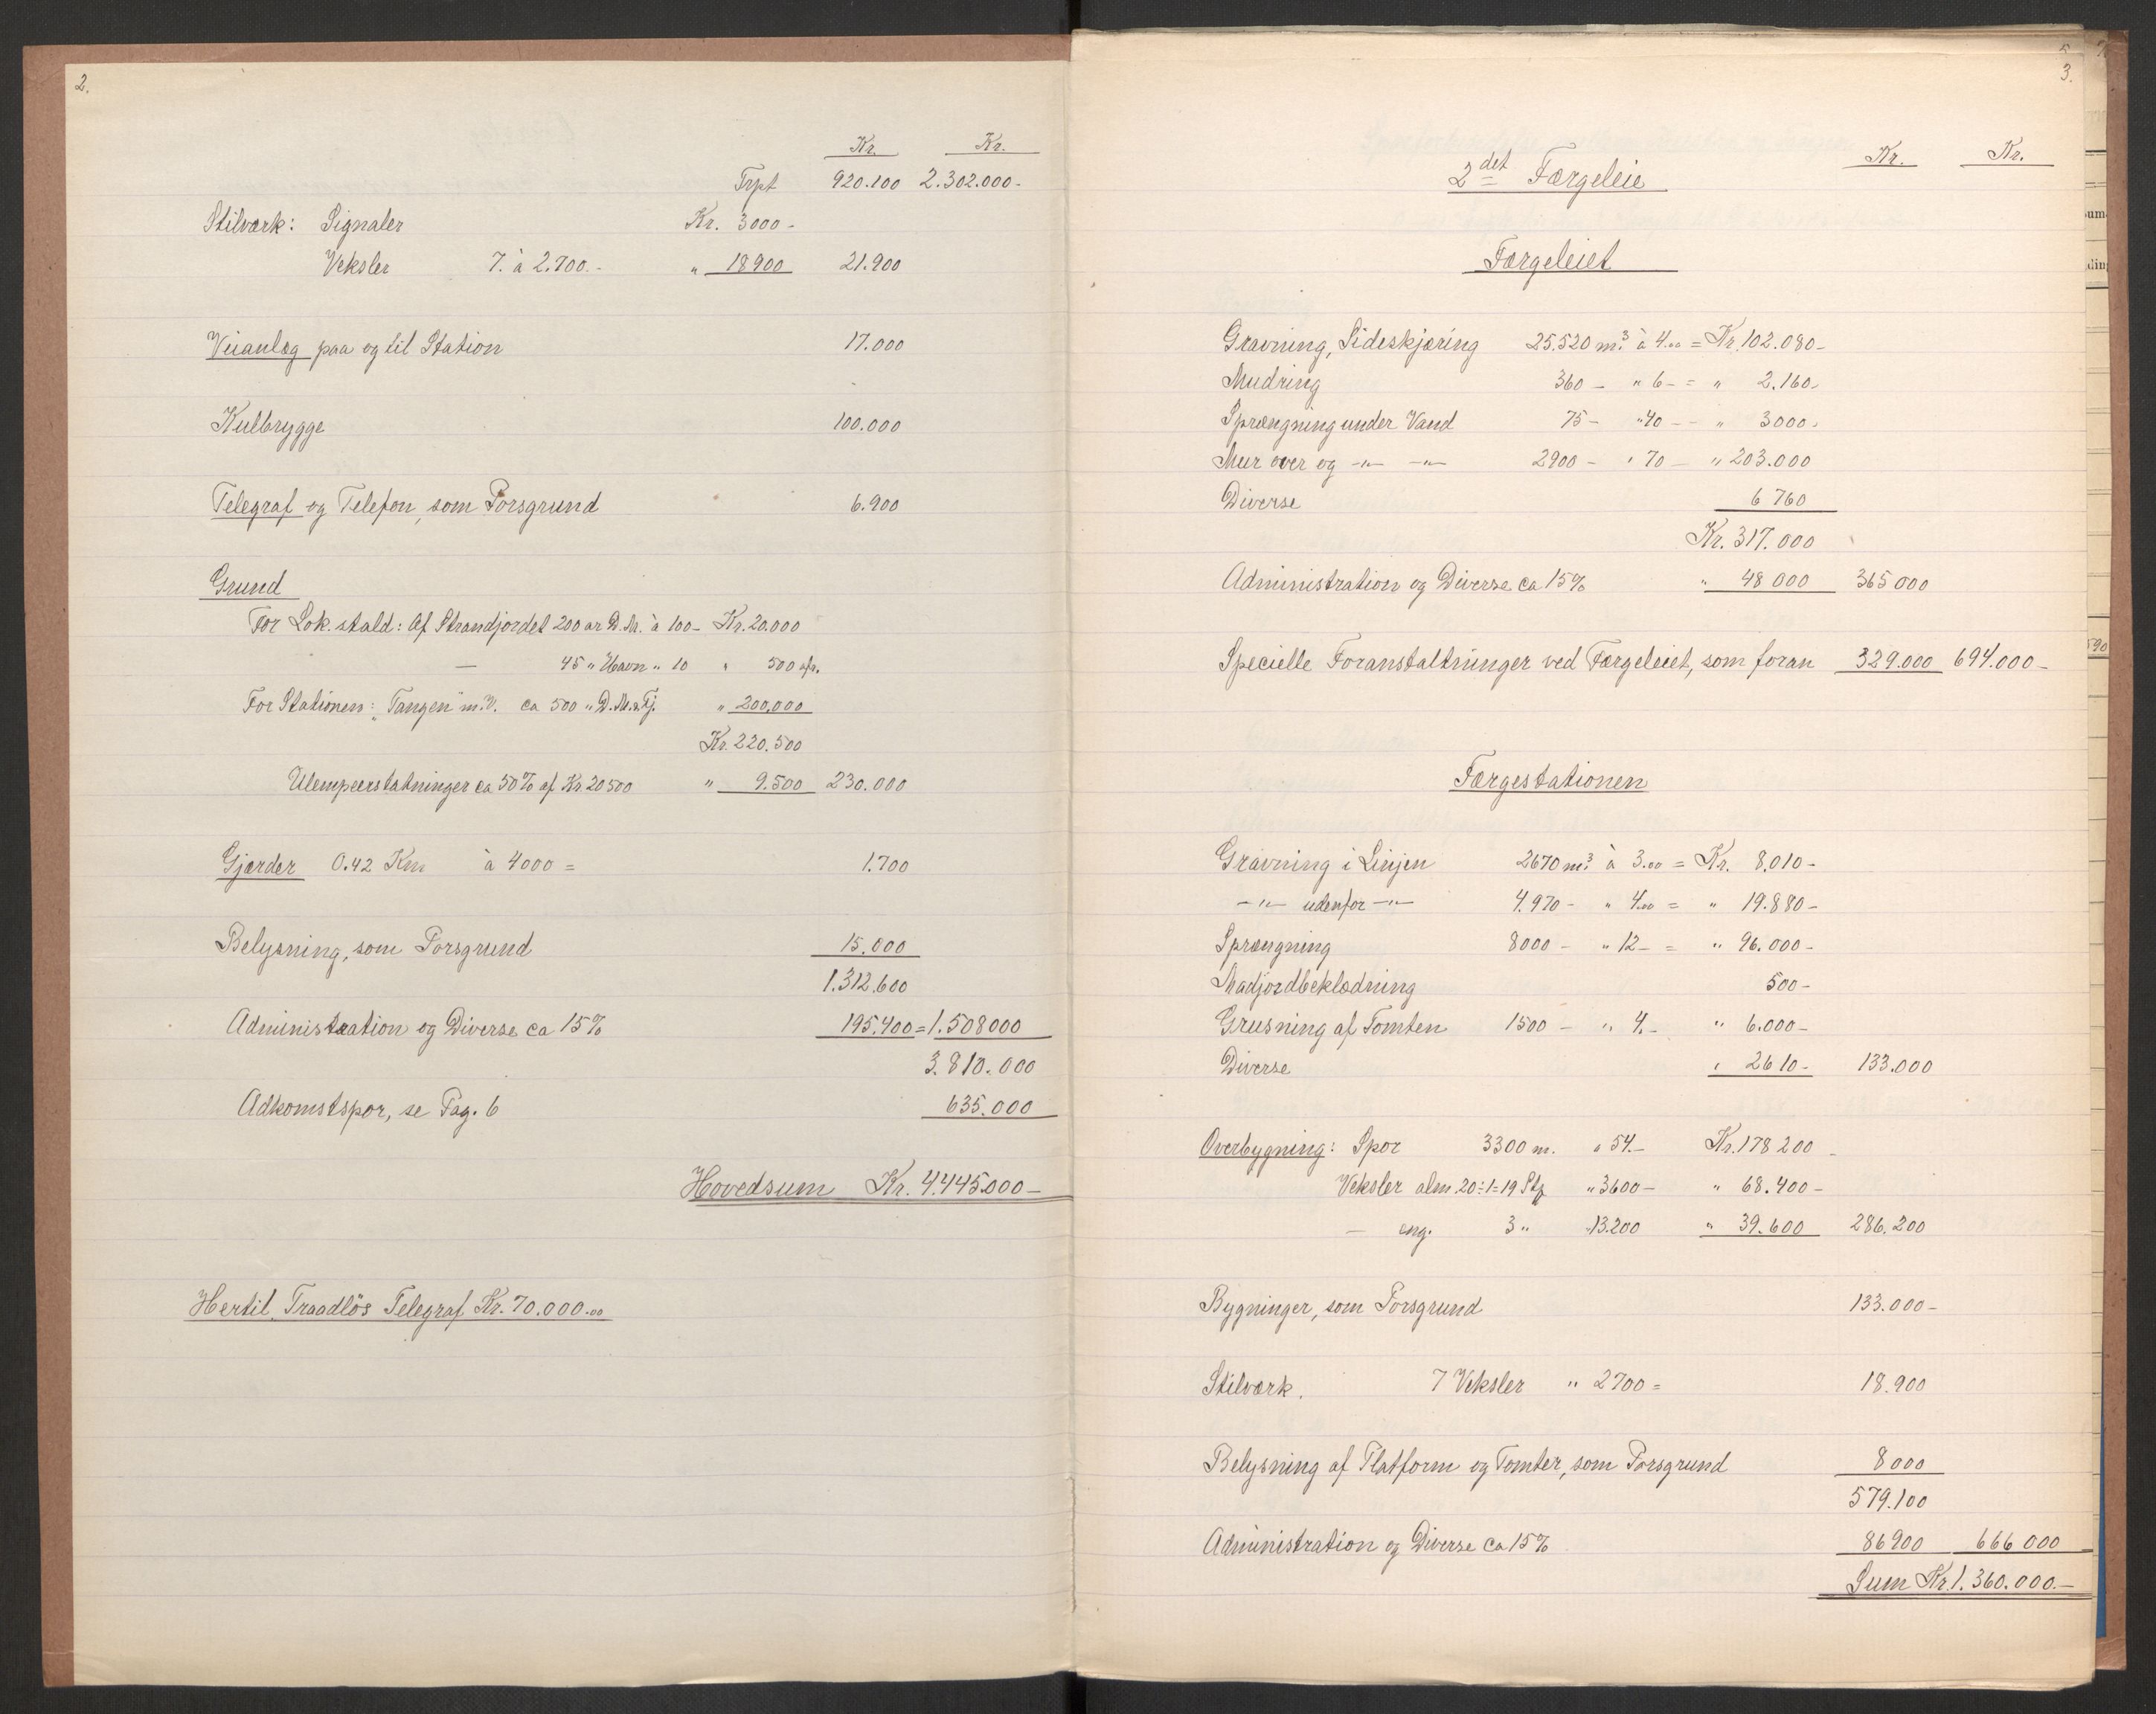 2.
Kr. Kr.
Trpt 920.100 2.302.000-
Stilværk: Signaler Kr. 3000-
Veksler 7. à 2.700.- " 18900 21.900
Veianlæg paa og til Station 17.000
Kulbrygge 100.000
Telegraf og Telefon, som Porsgrund 6.900
Grund
For Lok. stald: Af Strandjordet 200 ar D.M. à 100- Kr. 20.000
— 45 " Uhavn " 10 " 500
For Stationen: "Tangen" m.v. ca 500 " D.M. " 200.000
Kr. 220.500
Ulempeerstatninger ca 50% af Kr 20500 " 9.500 230.000
Gjærder 0.42 Km à 4000 = 1.700
Belysning, som Porsgrund 15.000
1.312.600
Administration og Diverse ca 15% 195.400 = 1.508000
3.810.000
Adkomstspor, se Pag. 6 635.000
Hovedsum Kr. 4.445.000-
Hertil Traadlös Telegraf Kr. 70.000.00
5
3.
Kr. Kr.
2det Færgeleie
Færgeleiet
Gravning, Sideskjæring 25.520 m.3 à 4.00 = Kr. 102.080-
Mudring 360 - " 6- = " 2.160-
Sprængning under Vand 75 - " 40 - - " 3000-
Mur over og -"- -"- 2900 - " 70 - " 203.000
Diverse 6 760
Kr. 317.000
Administration og Diverse ca 15% " 48 000 365 000
Specielle Foranstaltninger ved Færgeleiet, som foran 329.000 694.000-
Færgestationen
Gravning i Linjen 2670 m.3 à 3.00 = Kr. 8.010-
-"- udenfor -"- 4.970- " 4.00 = " 19.880-
Sprængning 8000 - " 12- = " 96.000-
Madjordbeklædning 500-
Grusning af Tomten 1500 - " 4.- " 6.000-
Diverse " 2610- 133.000
Overbygning: Spor 3300 m. à 54.- Kr. 178 200
Veksler alm. 20÷1=19 Stk " 3600- " 68.400-
— eng. 3 " " 13.200 " 39.600 286.200
Bygninger, som Porsgrund 133.000-
Stilværk. 7 Veksler " 2700 = 18.900
Belysning af Platform og Tomter, som Porsgrund 8 000
579.100
Administration og Diverse ca 15% 86900 666 000
Sum Kr. 1.360.000.-